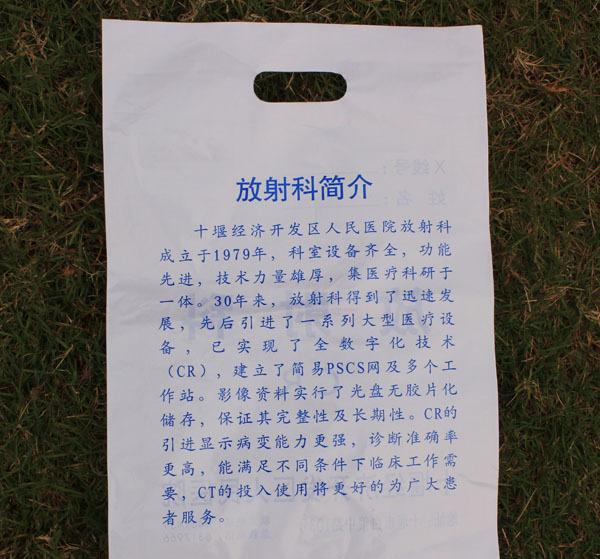 放射科简介
十堰经济开发区人民医院放射科
成立于1979年，科室设备齐全，功能
先进，技术力量雄厚，集医疗科研于
一体。30年来，放射科得到了迅速发
展，先后引进了一系列大型医疗设
备，已实现了全数字化技术
（CR），建立了简易PSCS网及多个工
作站。影像资料实行了光盘无胶片化
储存，保证其完整性及长期性。CR的
引进显示病变能力更强，诊断准确率
更高，能满足不同条件下临床工作需
要，CT的投入使用将更好的为广大患
者服务。
X线号：
姓 名：